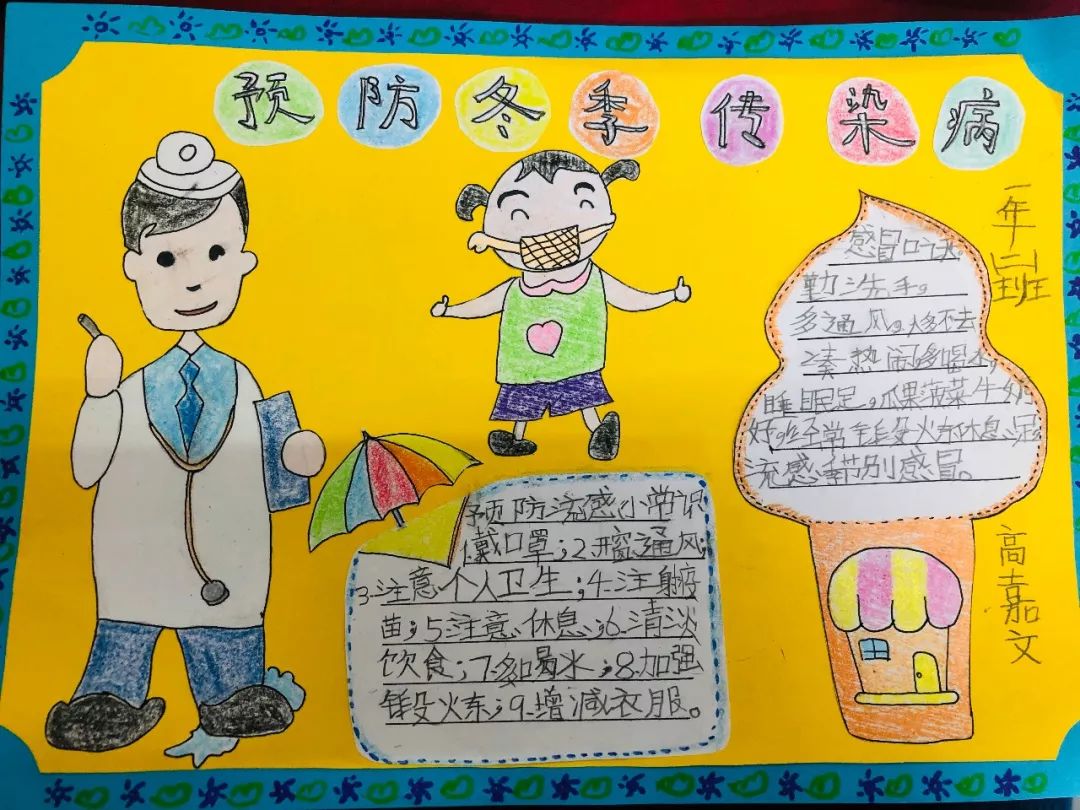 预防冬季传染病
一年二班
感冒口诀。
勤洗手。
多通风。大多不去
凑热闹。多喝水,
睡眠足。瓜果蔬菜牛奶
好。经常锻炼休息
流感季节别感冒。
高嘉文
预防流感小常识
戴口罩;2.开窗通风;
3.注意个人卫生;4.注射疫
苗;5.注意休息;6.清淡
饮食;7.多喝水;8.加强
锻炼;9.增减衣服。